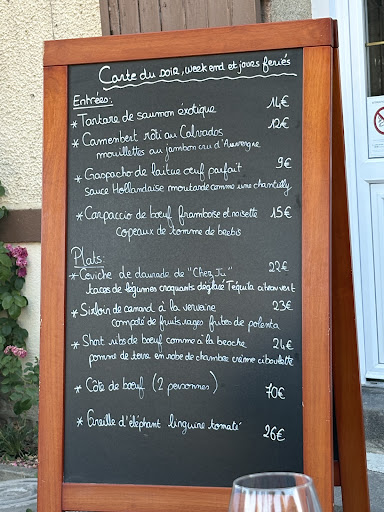 Carte du soir, week end et jours feriés
Entrées:
* Tartare de saumon exotique 14€
* Camembert rôti au Calvados 12€
mouillettes au jambon cru d'Auvergne
* Gaspacho de laitue oeuf parfait 9€
sauce Hollandaise moutarde comme une chantilly
* Carpaccio de boeuf framboise et noisette 15€
copeaux de tomme de brebis
Plats:
* Ceviche de daurade de "Chez Ju" 22€
tacos de légumes croquants déglacé Téquila citron vert
* Sirloin de canard à la verveine 23€
compoté de fruits rouges frites de polenta
* Short ribs de boeuf comme à la broche 24€
pomme de terre en robe de chambre crème ciboulette
* Côte de boeuf (2 personnes) 70€
* Oreille d'éléphant linguine tomate 26€